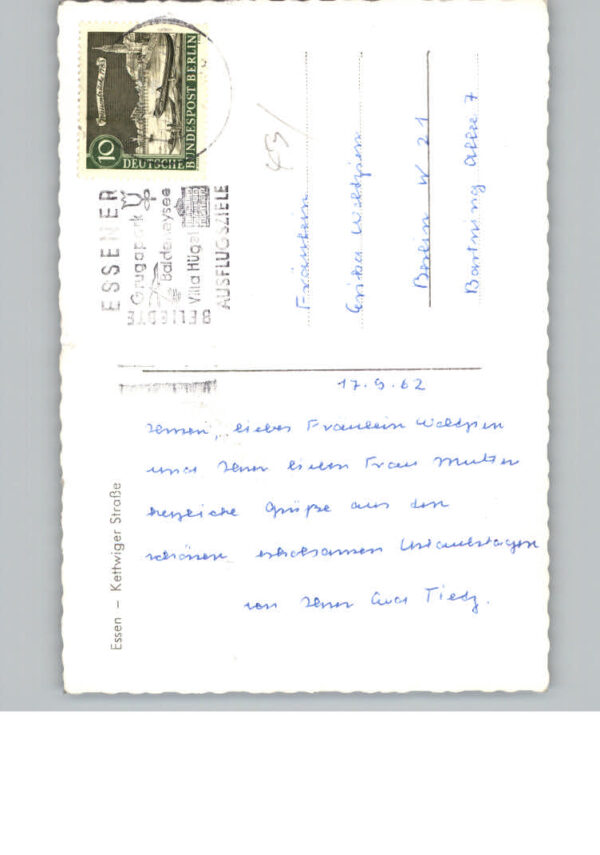 10
DEUTSCHE BUNDESPOST BERLIN
ESSENER
Grugapark
Baldeneysee
Villa Hügel
BELIEBTE
AUSFLUGSZIELE
Fräulein
Erika
Berlin W 21
Bartning Allee 7
17.9.62
Ihnen, liebes Fräulein
und Ihrer lieben Frau Mutter
herzliche Grüße aus den
schönen erholsamen Urlaubstagen
von Ihrer
Essen – Kettwiger Straße